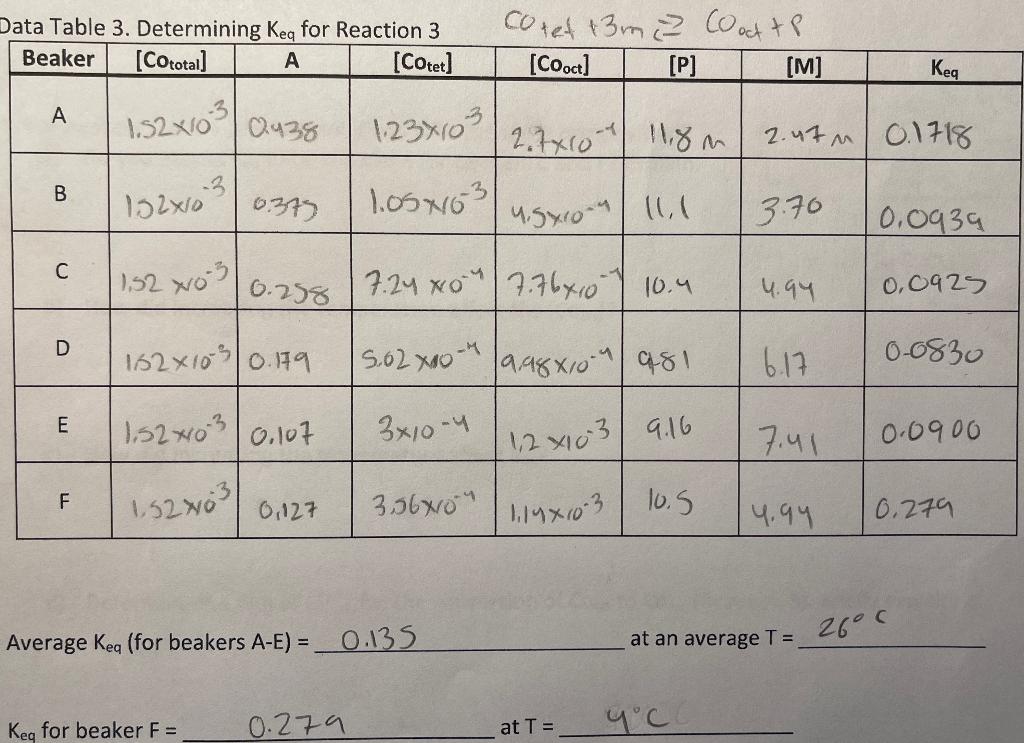 Co tet + 3m ⇌ Co oct + P
Data Table 3. Determining Keq for Reaction 3
Beaker [Cototal] A [Cotet] [Cooct] [P] [M] Keq
A 1.52x10-3 0.438 1.23x10-3 2.7x10-4 11.8 m 2.47 m 0.1718
B 1.52x10-3 0.375 1.05x10-3 4.5x10-4 11.1 3.70 0.0939
C 1.52 x10-3 0.258 7.24 x10-4 7.76x10-4 10.4 4.94 0.0925
D 1.52 x10-3 0.179 5.02 x10-4 9.98x10-4 9.81 6.17 0.0830
E 1.52 x10-3 0.107 3x10-4 1.2 x10-3 9.16 7.41 0.0900
F 1.52 x10-3 0.127 3.56x10-4 1.14x10-3 10.5 4.94 0.279
Average Keq (for beakers A-E) = 0.135 at an average T = 26° C
Keq for beaker F = 0.279 at T = 4°C